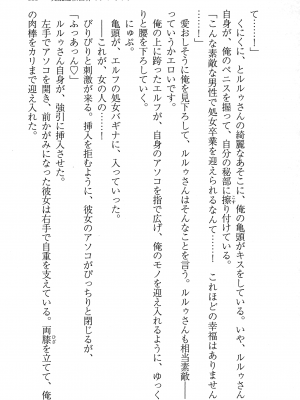 て……！」
くにくに、とルルゥさんの綺麗なあそこに、俺の亀頭がキスをしている。いや、ルルゥさん
自身が、俺のペニスを握って、自分の秘部に擦り付けている。
「こんな素敵な男性で処女卒業を迎えられるなんて……！　これほどの幸福はありません
……！」
愛おしそうに俺を見下ろして、ルルゥさんはそんなことを言う。ルルゥさんも相当素敵――
っていうかエロいです。
俺の上に跨ったエルフが、自身のアソコを指で広げ、俺のモノを迎え入れるように、ゆっく
りと腰を下ろしていく。
にゅぷ。
亀頭が、エルフの処女バギナに、入っていった。
――これが、女の人の……！
ぴりぴりと刺激が来る。挿入を拒むように、彼女のアソコがぴっちりと閉じるが、
「ふっあっん♡」
ルルゥさん自身が、強引に挿入させた。
左手でアソコを開き、前かがみになった彼女は右手で自重を支えている。両膝を立てて、俺
の肉棒をカリまで迎え入れた。